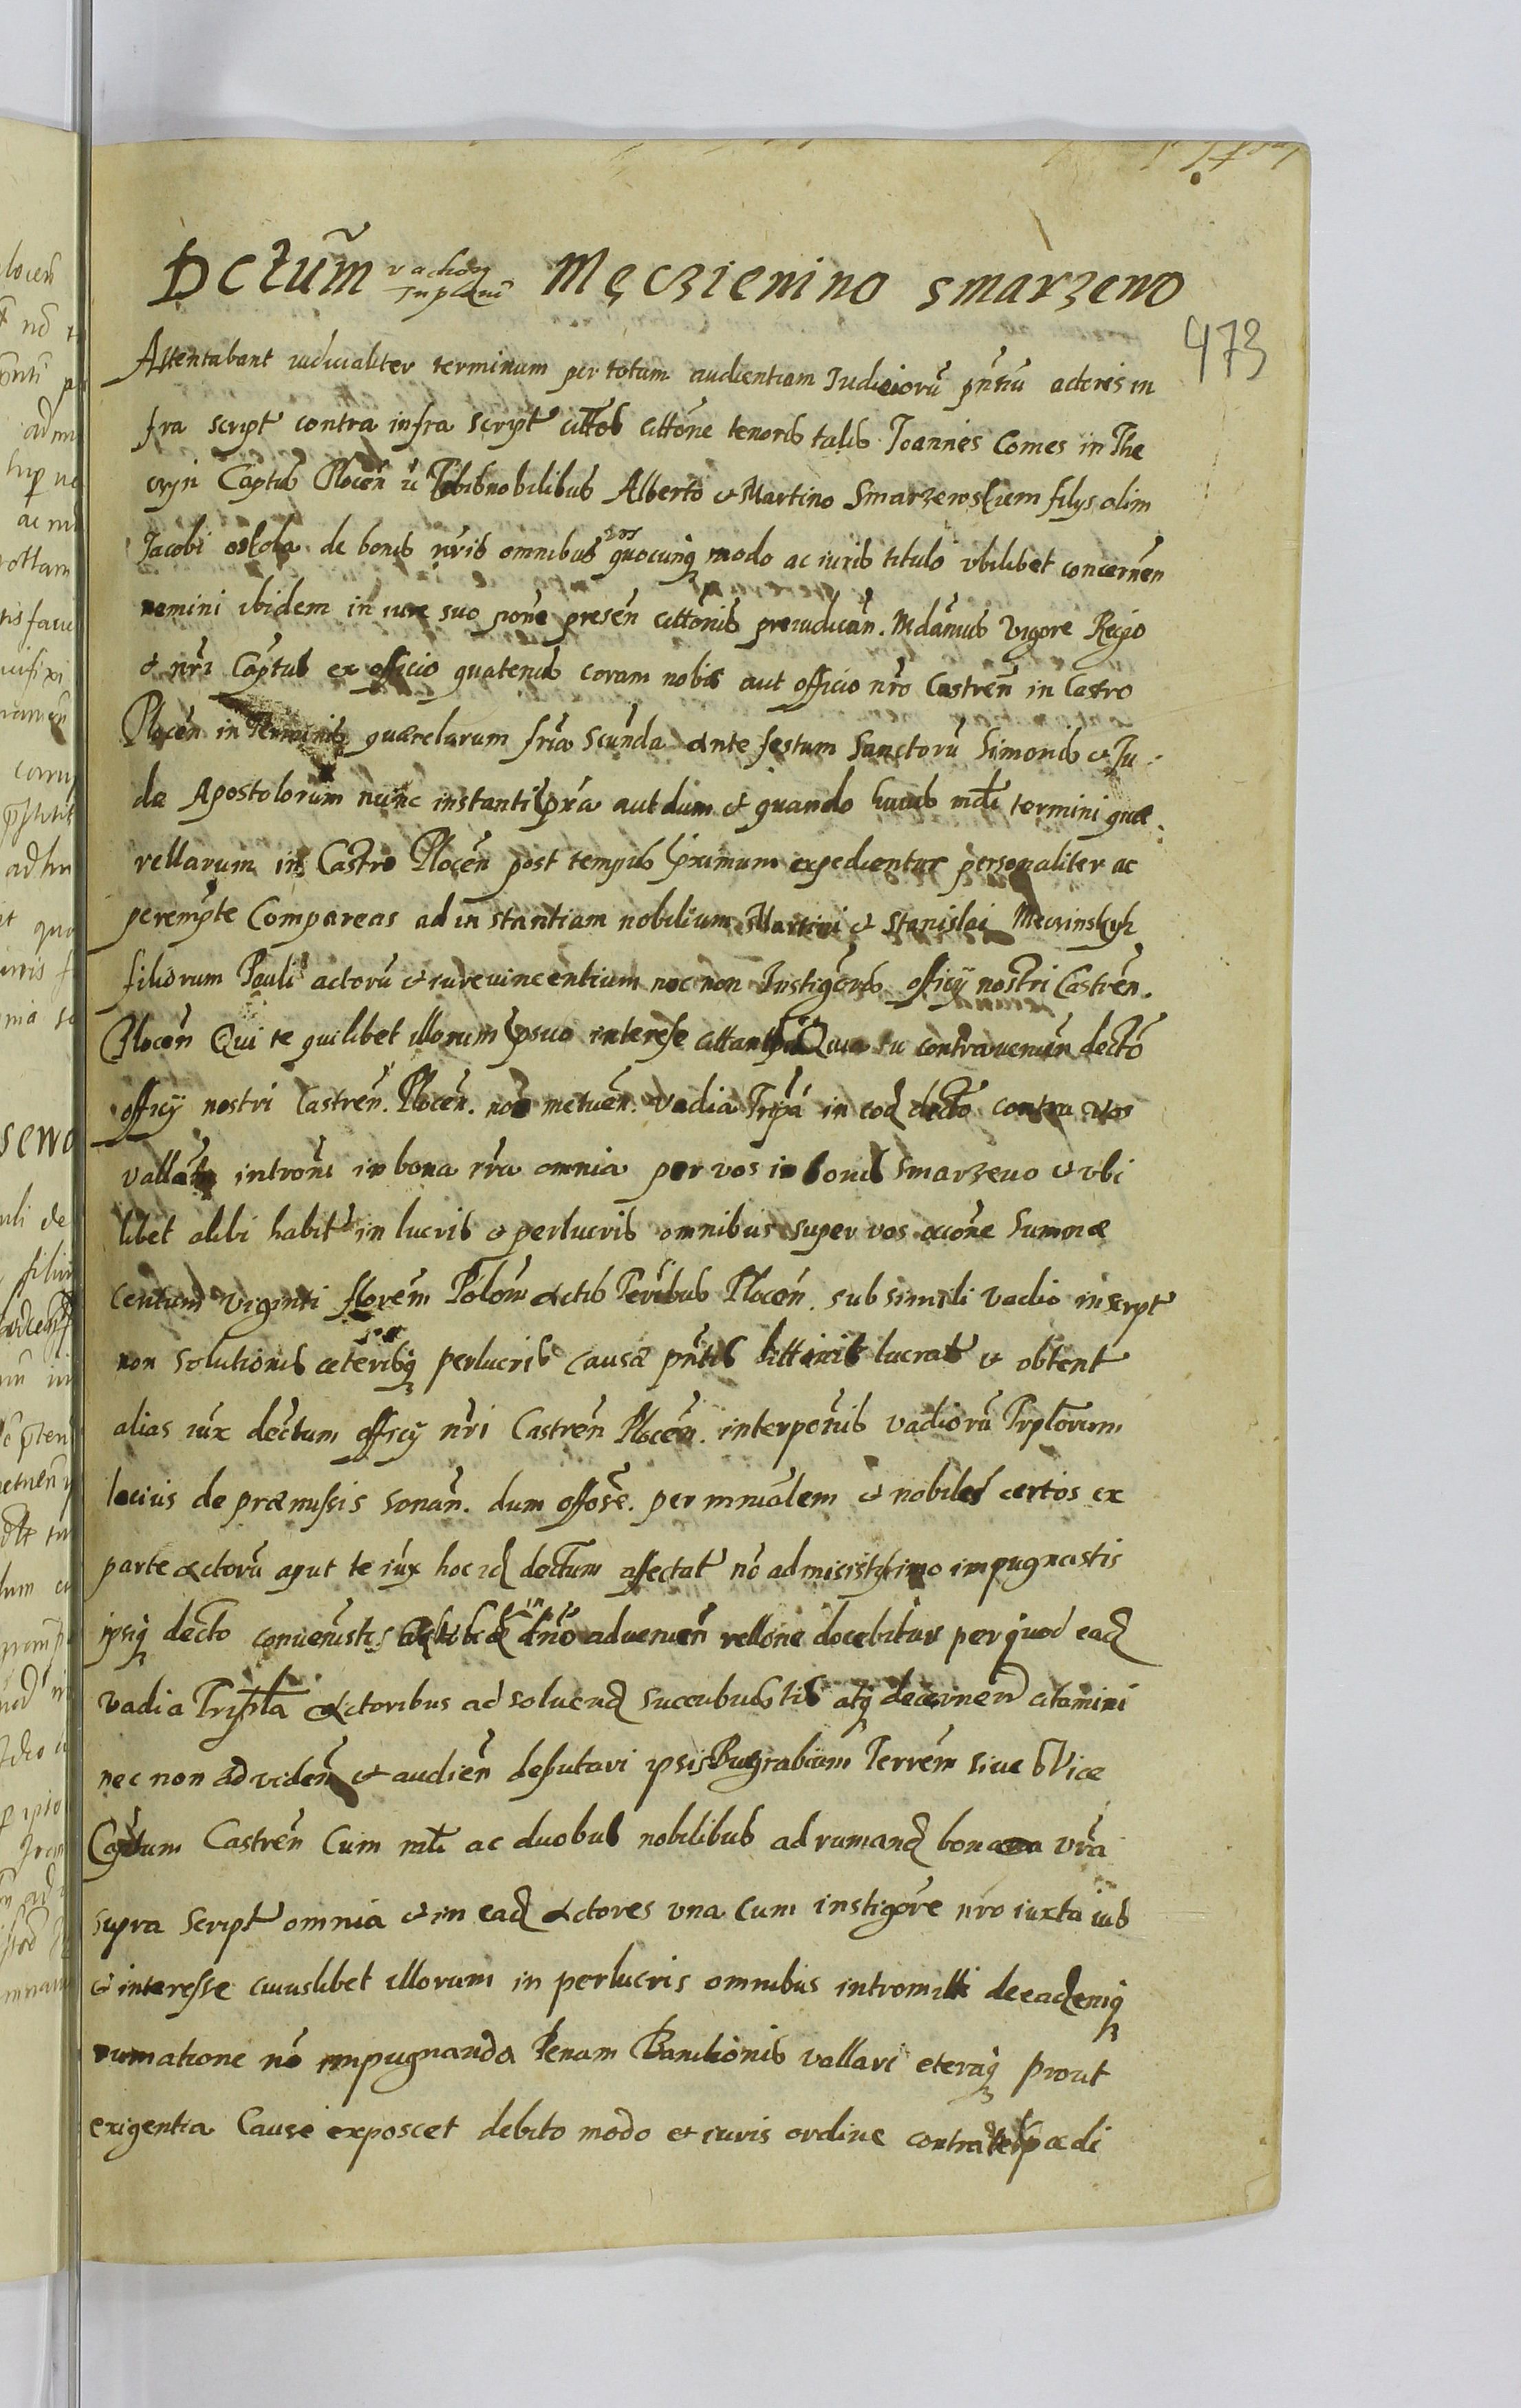 Dctum̃ vadior̃ Tripl̃mi Męczienino smarzewo
473
Attentabant iudicialiter terminum per totam audientiam Iudiciorũ pñtiũ actores in
fra script contra infra script citt̃os citt̃one tenoris talis Ioannes Comes in The
czyn Captus Plocen̄ Vobis nobilibus Alberto et Martino Smarzewskiem filys olim
Iacobi de bonis vr̃is omnibus vos quocunq modo ac iuris titulo vbilibet concernen̄
nemini ibidem in iure suo rõne presen̄ citt̃onis preiudican̄. Mdamus vigore Regio
et nr̃i Captus ex officio quatenus coram nobis aut officio nr̃o Castren̄ in Castro
Plocen̄ in Terminis quærelarum fria scunda ante festum Sanctorũ Simonis et Iu
dæ Apostolorum nunc instanti pxa aut dum et quando huius mdi termini quæ
rellarum in Castro Plocen̄ post tempus pximum expedientur personaliter ac
perempte Compareas ad in stantiam nobilium Martini et Stanislai Meczinskych
filiorum Pauli actorũ et iurevincentium nec non Instigoris officÿ nostri Castren̄.
Plocen̄ Qui te quilibet illorum p suo interesse cittant Quia tu contravenien̄ decto
officÿ nostri Castren̄. Plocen̄. non metuen̄. vadia Tripla in eod decto contra vos
vallata introm̃i in bona vr̃a omnia per vos in bonis Smarzeuo et vbi
libet alibi habit in lucris et perlucris omnibus super vos rõne Summæ
centum viginti floren̄ Polon̄ Actis Terribus Plocen̄. sub simili vadio inscript
non solutionis cæterisq perlucris causæ pñtis littoris lucrat et obtent
alias iux dectum officÿ nr̃i Castren̄ Plocen̄. interpoñis vadiorũ Triplorum
lacius de præmissis sonan̄. dum per mnialem et nobiles certos ex
parte Actorũ aput te iux hoc id dectum affectat nõ admisistis imo impugnastis
ipsiq decto convenistis advenien̄ rellone docebitur per quod ead
vadia Tripla Actoribus ad soluend succubuistis atq decernen̄ citamini
nec non ad viden̄ et audien̄ deputari ipsis Bugrabium Terren̄ siue Vice
Captum Castren̄ Cum mli ac duobus nobilibus ad rumand bona vr̃a
supra script omnia et in ead Actores vna cum instigore nr̃o iuxta ius
et interesse cuiuslibet illorum in perlucris omnibus intromitti de eademq
rumatione nõ impugnanda Penam Banitionis vallari cæteraq prout
exigentia Cause exposcet debito modo et iuris ordine contra te pcedi